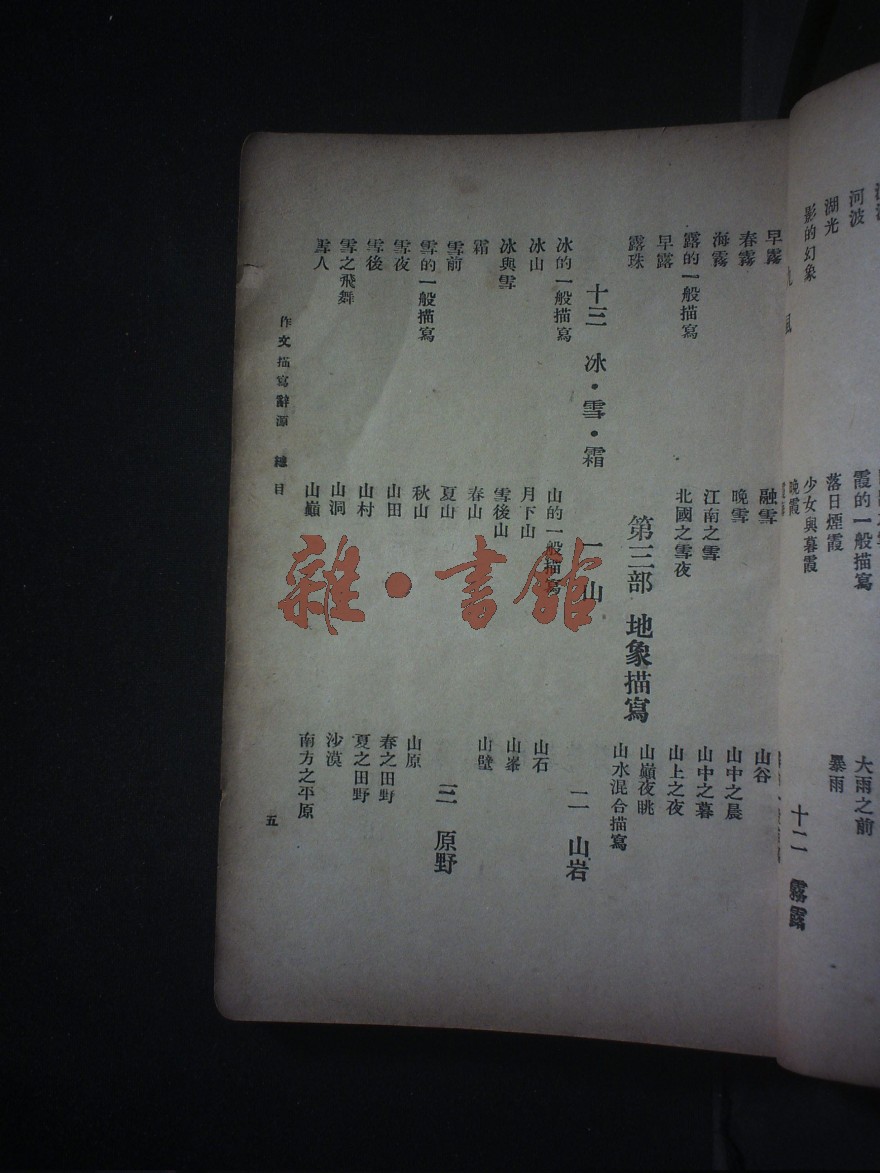 湖光
河波
影的幻象
風
霞的一般描寫
落日煙霞
少女與暮霞
晚霞
大雨之前
暴雨
十二 霧露
早霧
春霧
海霧
露的一般描寫
早露
露珠
十三 冰·雪·霜
冰的一般描寫
冰山
冰與雪
霜
雪前
雪的一般描寫
雪夜
雪後
雪之飛舞
雪人
融雪
晚雪
江南之雪
北國之雪夜
第三部 地象描寫
一 山
山的一般描寫
月下山
雪後山
春山
夏山
秋山
山田
山村
山洞
山巔
山谷
山中之晨
山中之暮
山上之夜
山巔夜眺
山水混合描寫
二 山岩
山石
山峯
山壁
三 原野
山原
春之田野
夏之田野
沙漠
南方之平原
作文描寫辭源 總目
五
雜·書館